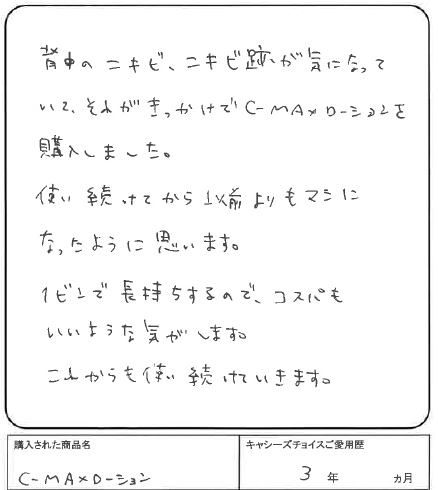 背中のニキビ、ニキビ跡が気になって
いて、それがきっかけでC-MAXローションを
購入しました。
使い続けてから以前よりもマシに
なったように思います。
1ビンで長持ちするので、コスパも
いいような気がします。
これからも使い続けていきます。
購入された商品名
キャシーズチョイスご愛用歴
C-MAXローション
3年 ヵ月